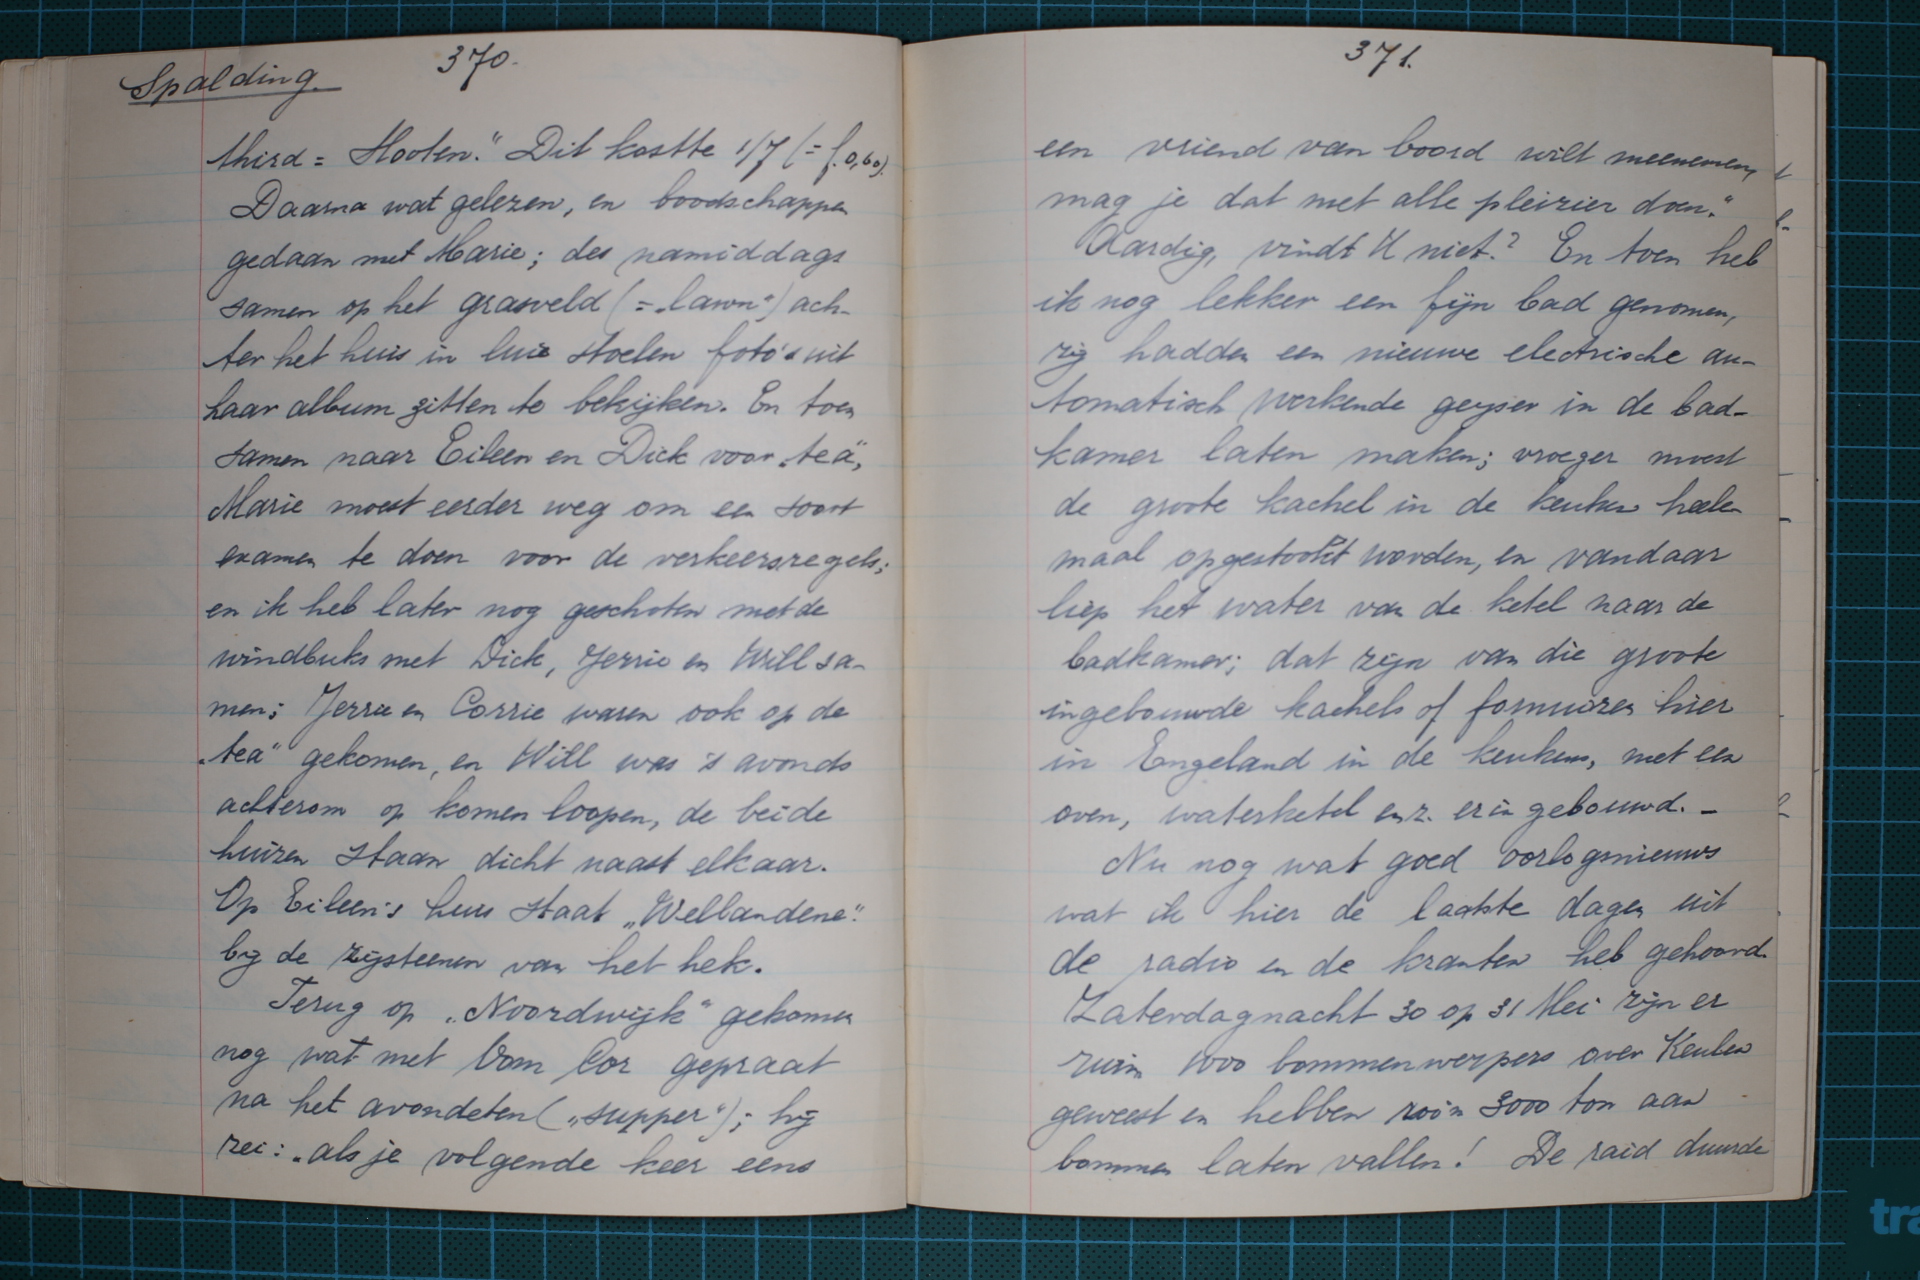 Spalding.
370.
third = Hooten." Dit kostte 1/7 (= f. 0,60).
Daarna wat gelezen, en boodschappen
gedaan met Marie; des namiddags
samen op het grasveld (= „lawn") ach-
ter het huis in luie stoelen foto's uit
haar album zitten te bekijken. En toen
samen naar Eileen en Dick voor „tea",
Marie moest eerder weg om een soort
examen te doen voor de verkeersregels;
en ik heb later nog geschoten met de
windbuks met Dick, Jerrie en Will sa-
men; Jerrie en Corrie waren ook op de
„tea" gekomen, en Will was 's avonds
achterom op komen loopen, de beide
huizen staan dicht naast elkaar.
Op Eileen's huis staat „Wellandene".
bij de zijsteenen van het hek.
Terug op „Noordwijk" gekomen
nog wat met Oom Cor gepraat
na het avondeten („supper"); hij
zei: „als je volgende keer eens
371.
een vriend van boord wilt meenemen,
mag je dat met alle pleizier doen."
Aardig, vindt U niet? En toen heb
ik nog lekker een fijn bad genomen,
zij hadden een nieuwe electrische au-
tomatisch werkende geyser in de bad-
kamer laten maken; vroeger moest
de groote kachel in de keuken hele-
maal opgestookt worden, en vandaar
liep het water van de ketel naar de
badkamer; dat zijn van die groote
ingebouwde kachels of fornuizen hier
in Engeland in de keukens, met een
oven, waterketel enz. er in gebouwd. –
Nu nog wat goed oorlogsnieuws
wat ik hier de laatste dagen uit
de radio en de kranten heb gehoord.
Zaterdagnacht 30 op 31 Mei zijn er
ruim 1000 bommenwerpers over Keulen
geweest en hebben zoo'n 3000 ton aan
bommen laten vallen! De raid duurde
tra